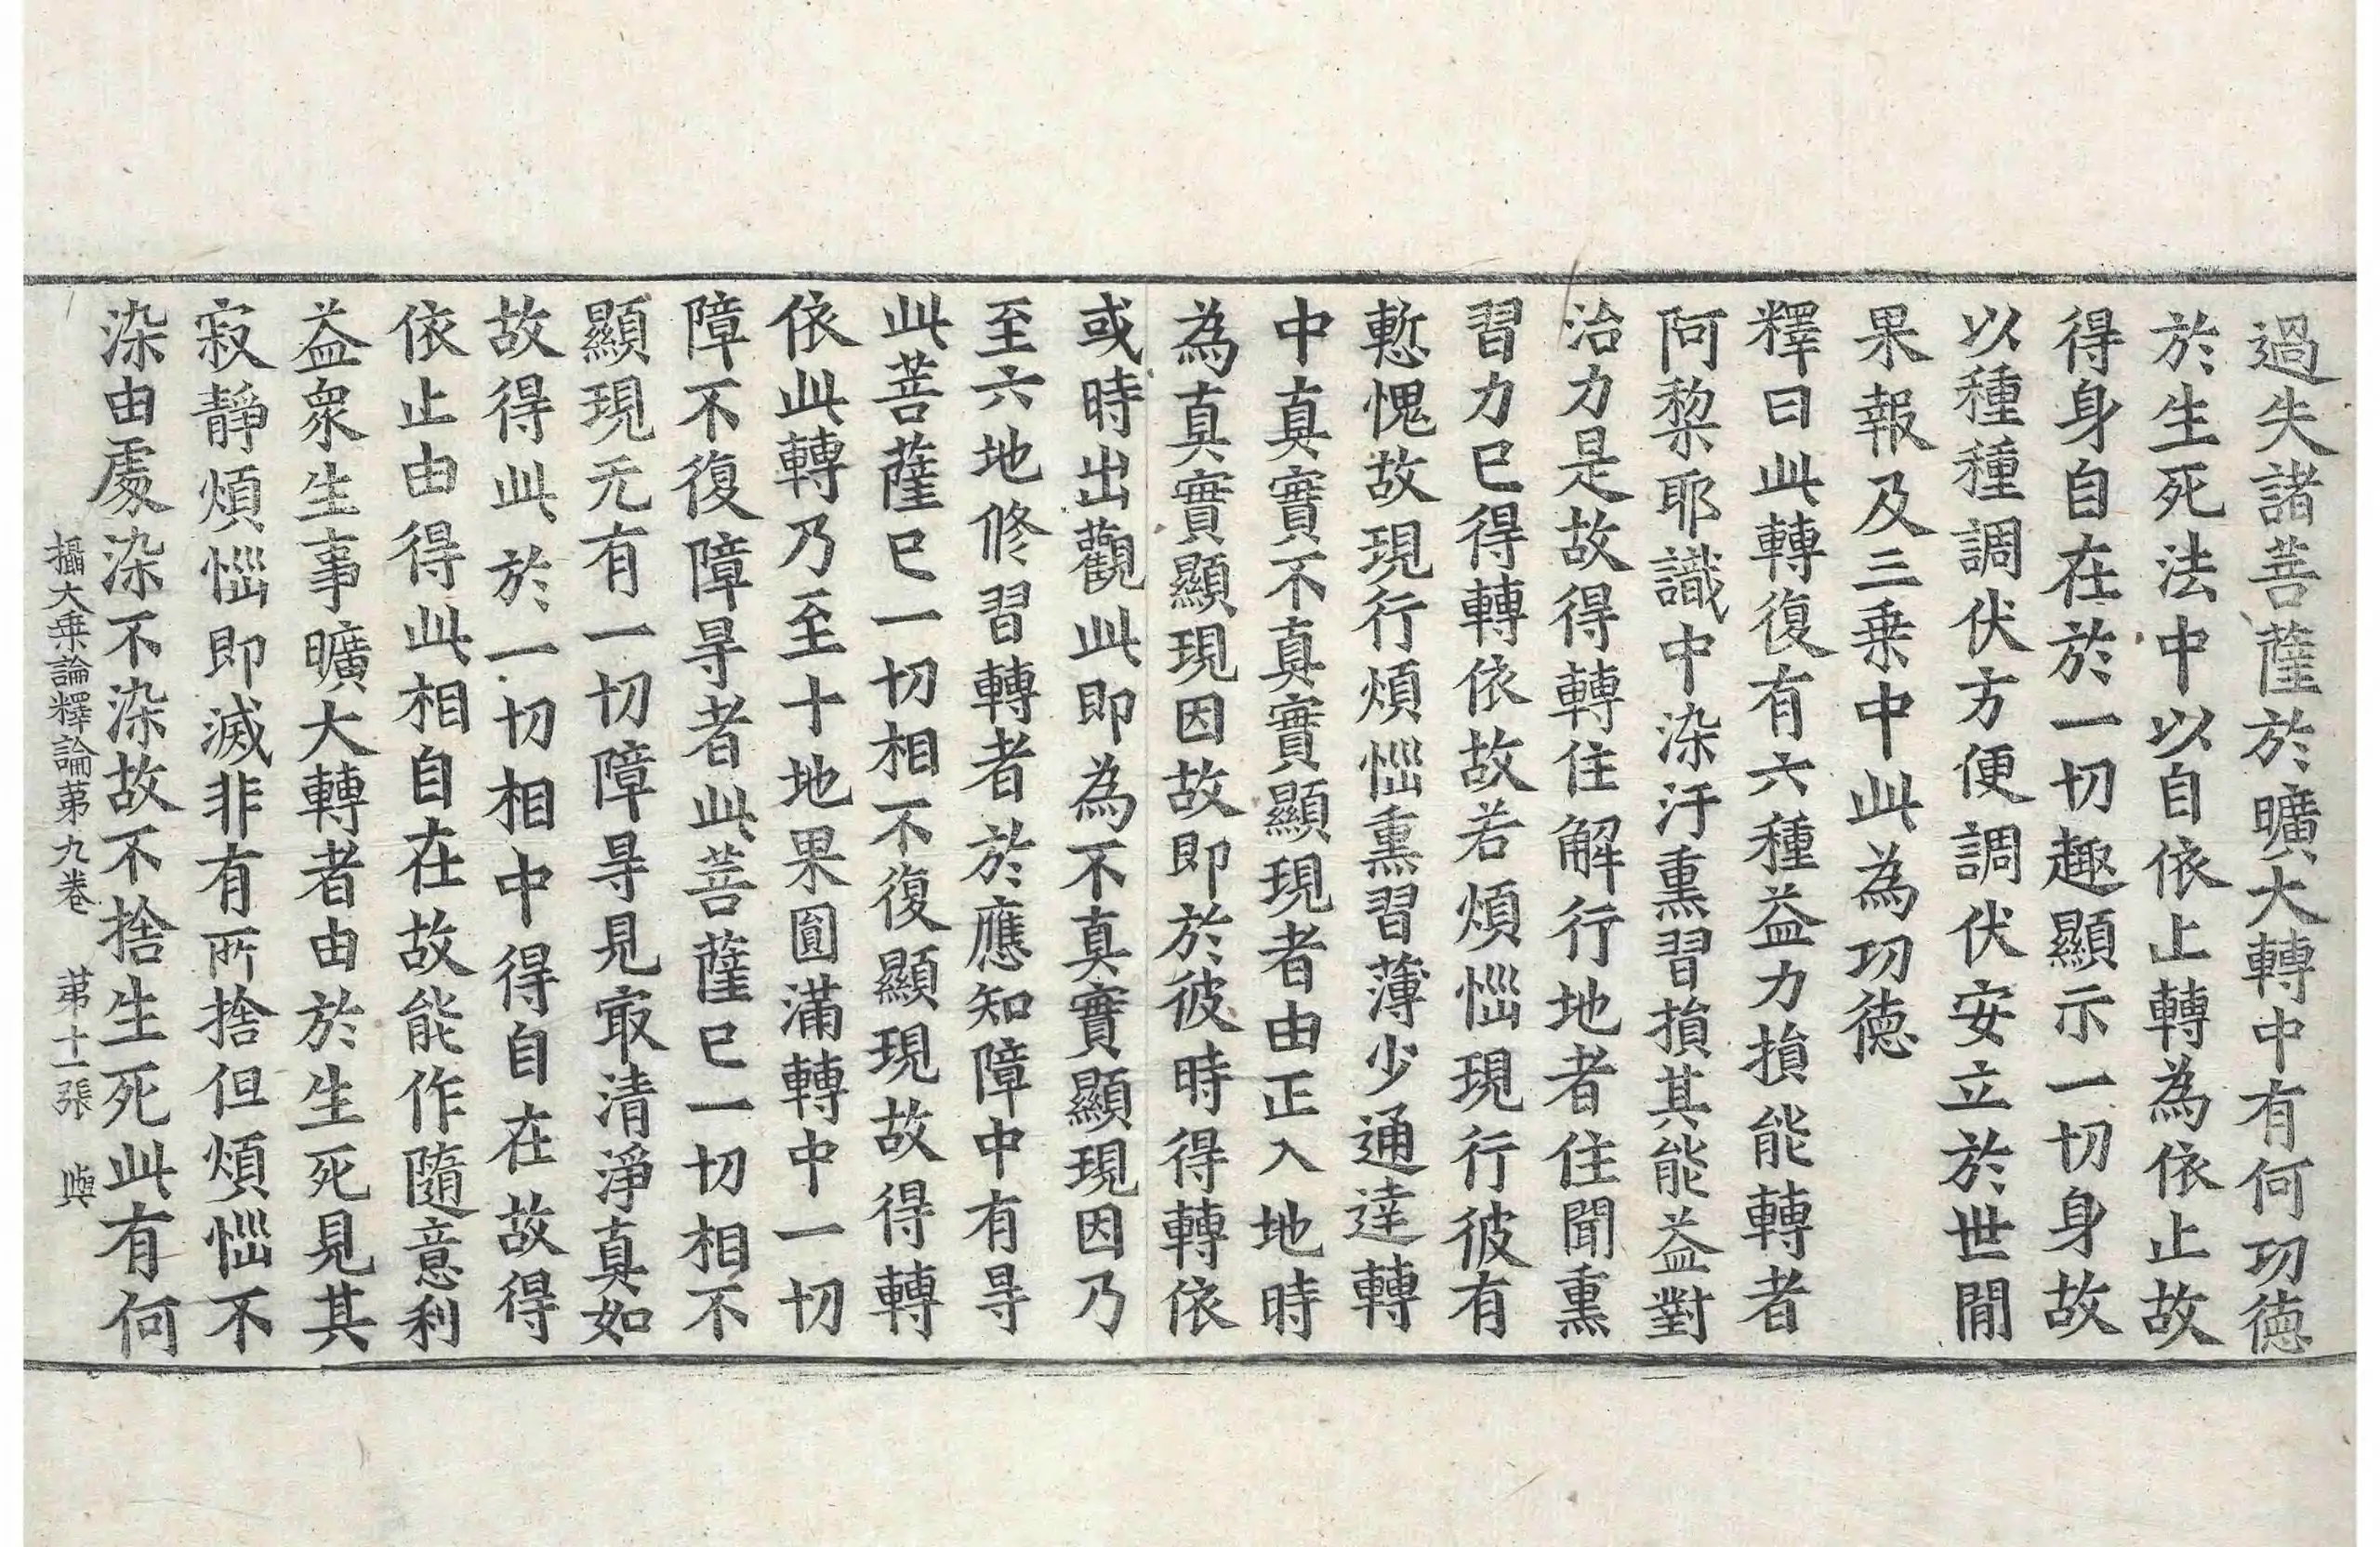 過失諸菩薩於曠大轉中有何功德
於生死法中以自依止轉為依止故
得身自在於一切趣顯示一切身故
以種種調伏方便調伏安立於世間
果報及三乗中此為功德
釋曰此轉復有六種益力損能轉者
阿棃耶識中染汙熏習損其能益對
治力是故得轉住解行地者住聞熏
習力已得轉依故若煩惱現行彼有
慙愧故現行煩惱熏習薄少通達轉
中真實不真實顯現者由正入地時
為真實顯現因故即於彼時得轉依
或時出觀此即為不真實顯現因乃
至六地修習轉者於應知障中有㝵
此菩薩已一切相不復顯現故得轉
依此轉乃至十地果圓滿轉中一切
障不復障㝵者此菩薩已一切相不
顯現无有一切障㝵見㝡清淨真如
故得此於一切相中得自在故得
依止由得此相自在故能作隨意利
益衆生事曠大轉者由於生死見其
寂靜煩惱即滅非有所捨但煩惱不
染由處染不染故不捨生死此有何
攝大乗論釋論苐九卷 苐十一張 與